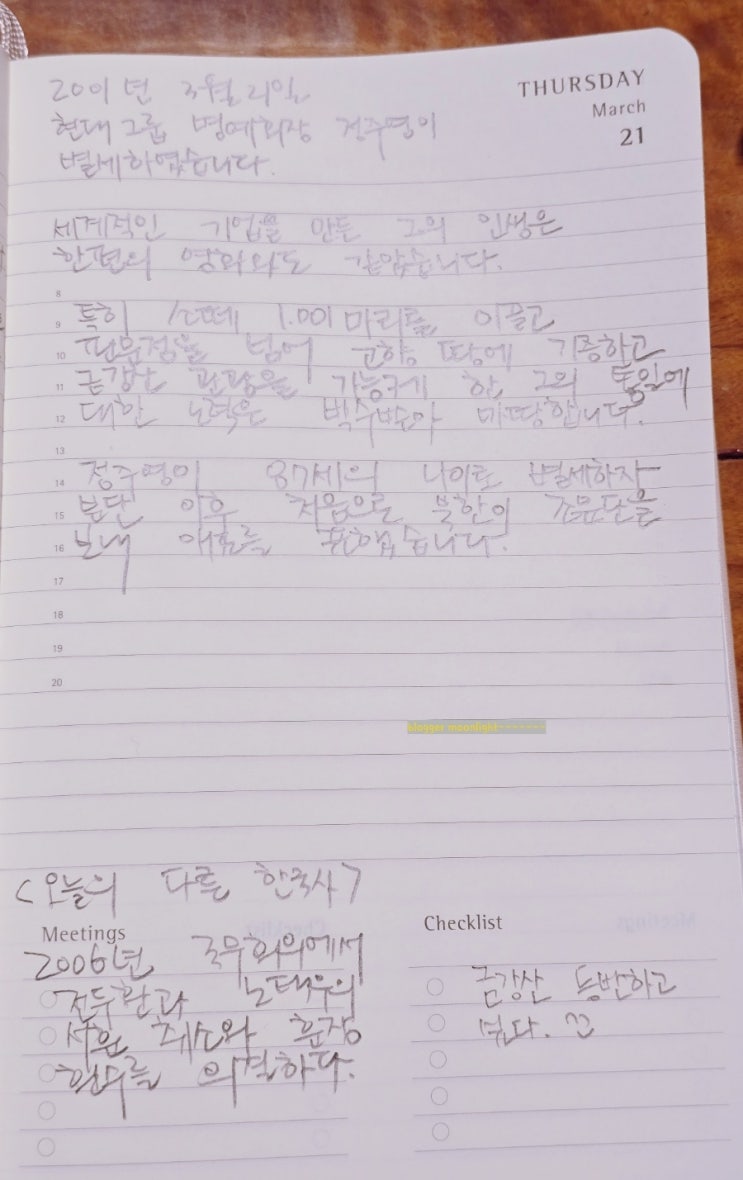 THURSDAY
March
21
2001년 3월 21일
현대그룹 명예회장 정주영이
별세하였습니다.
세계적인 기업을 만든 그의 인생은
한편의 영화와도 같았습니다.
8
9 특히 소떼 1.001마리를 이끌고
10 판문점을 넘어 고향 땅에 기증하고
11 금강산 관광을 가능케 한 그의 통일에
12 대한 노력은 박수받아 마땅합니다.
13
14 정주영이 87세의 나이로 별세하자
15 분단 이후 처음으로 북한이 조문단을
16 보내 애도를 표했습니다.
17
18
19
20
blogger moonlight
<오늘의 다른 한국사>
Meetings
2006년 국무회의에서
전두환과 노태우의
서훈 취소와 훈장
환수를 의결하다.
Checklist
금강산 등반하고
싶다.